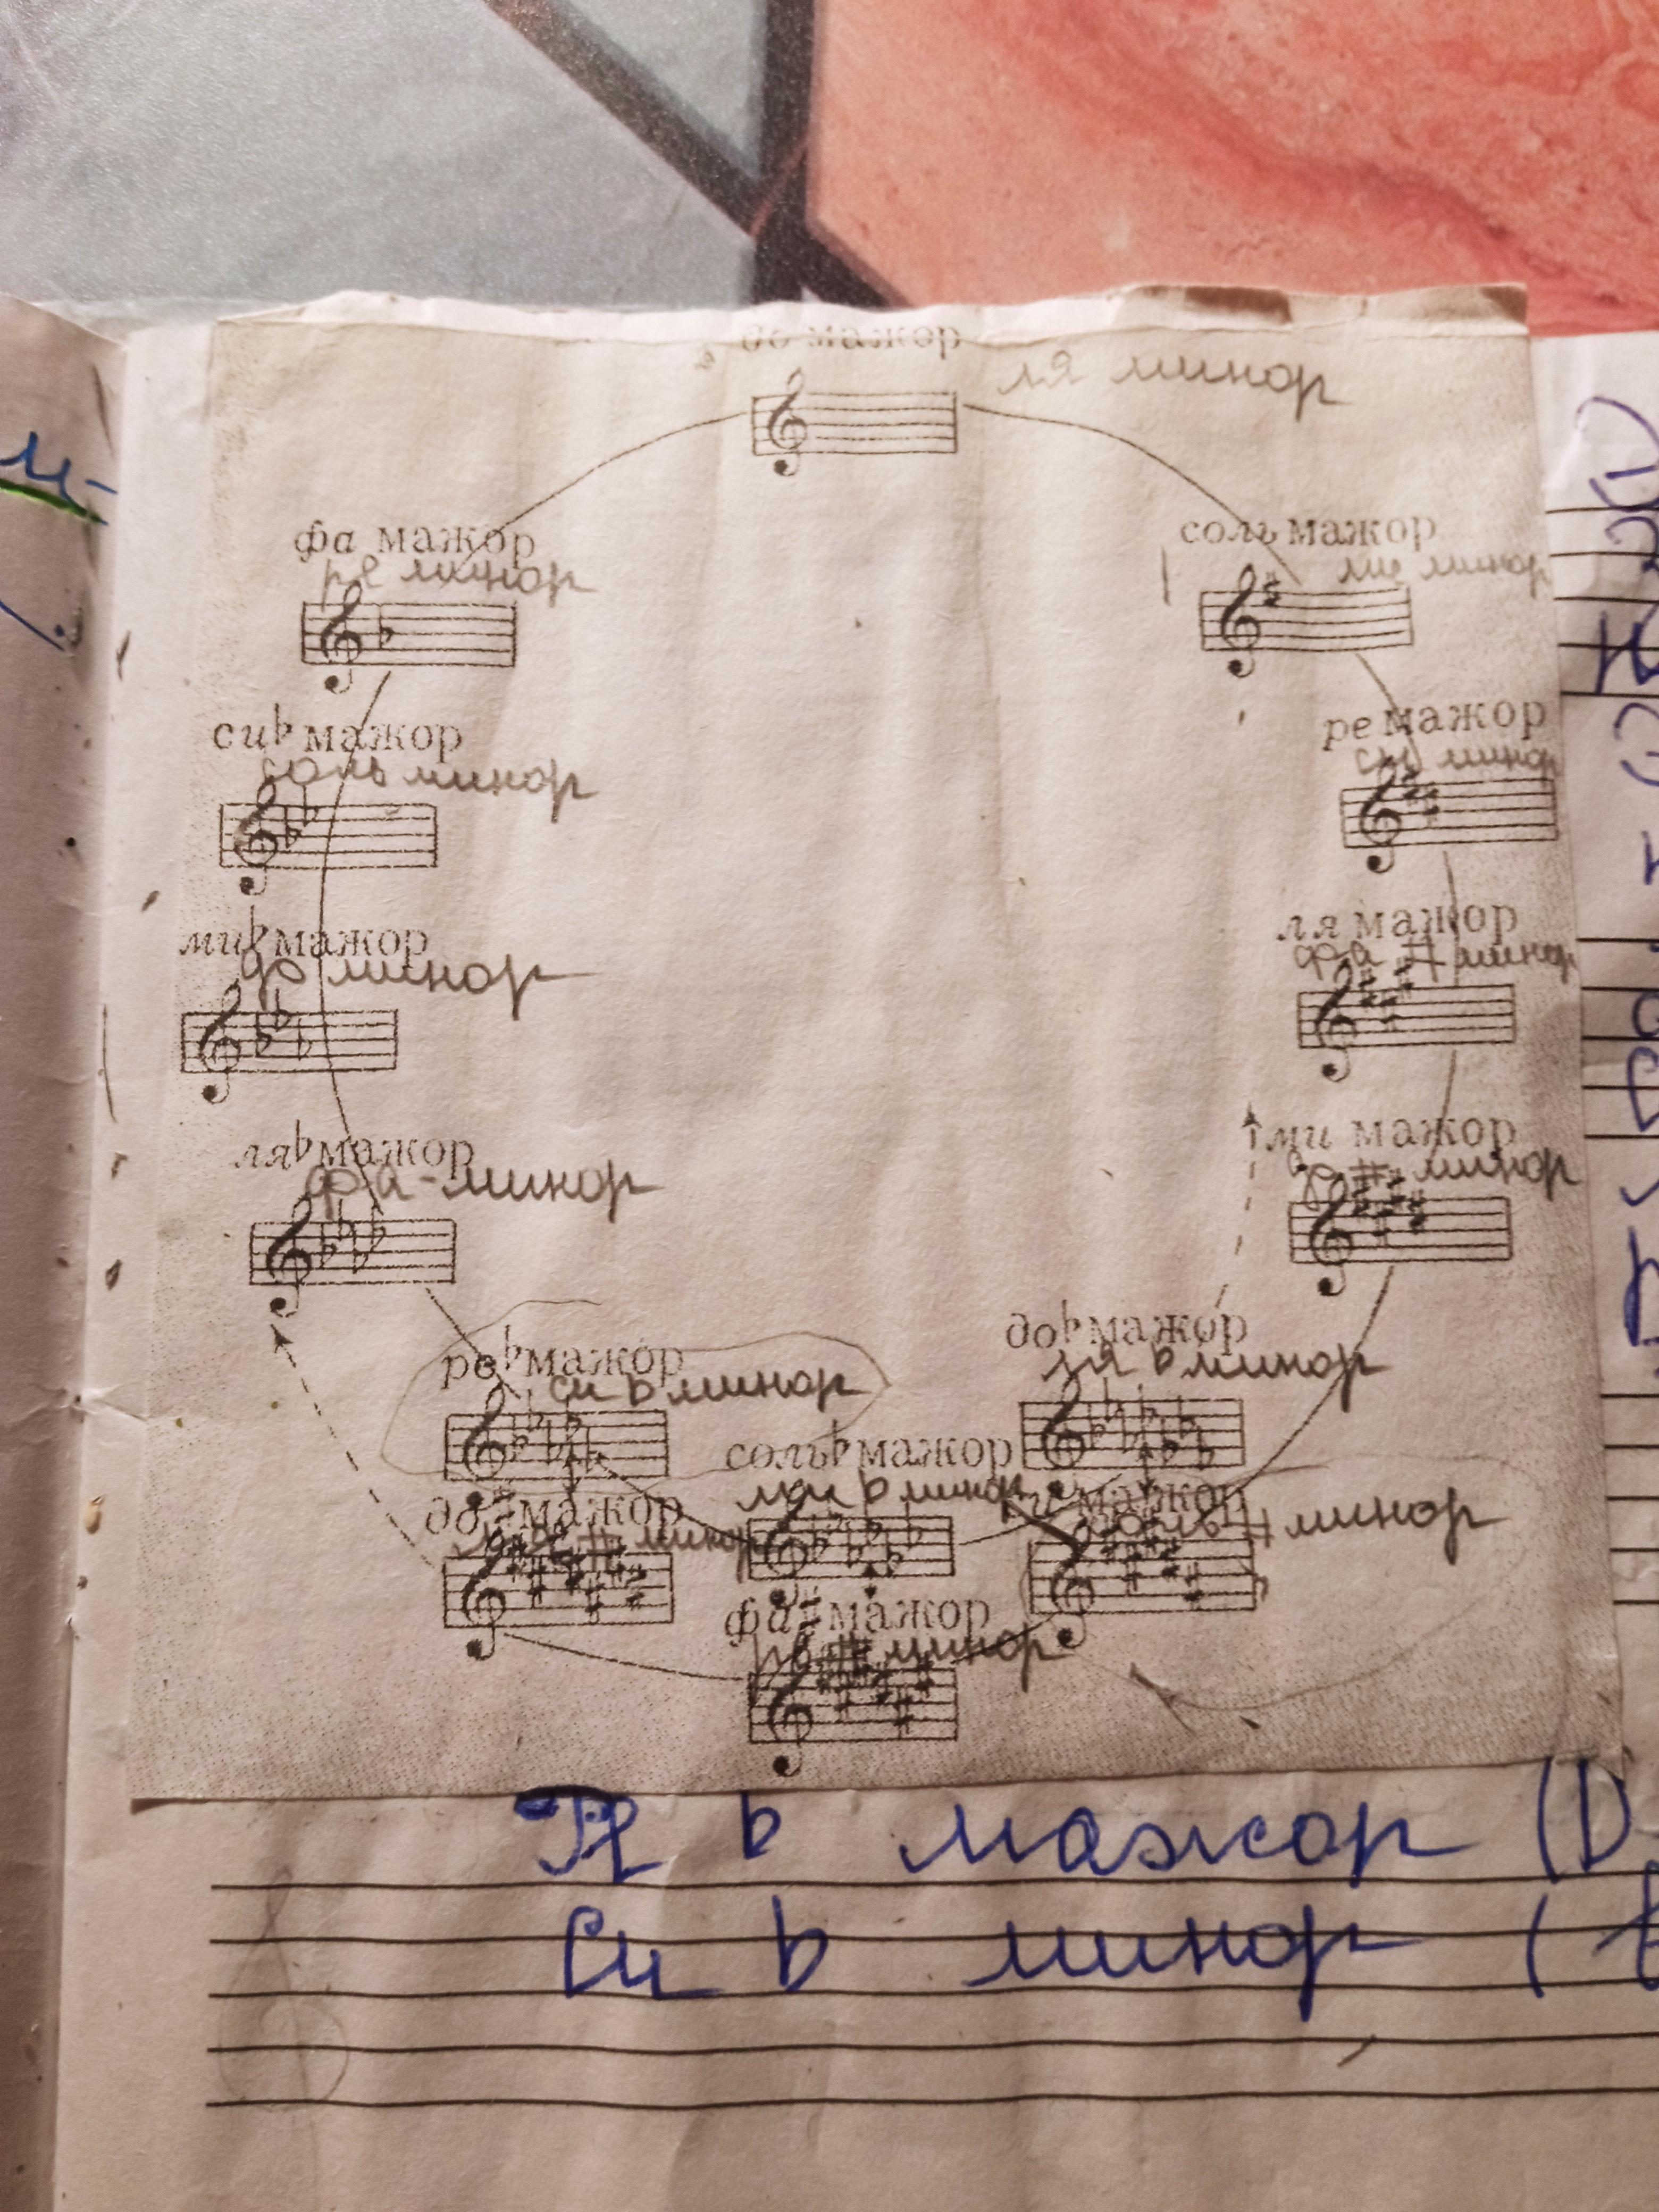 до мажор
ля минор
фа мажор
ре минор
соль мажор
ми минор
си♭ мажор
соль минор
ре мажор
си минор
ми♭ мажор
до минор
ля мажор
фа # минор
ля♭ мажор
фа-минор
ми мажор
до # минор
ре♭ мажор
си ♭ минор
до♭ мажор
ля ♭ минор
соль♭ мажор
ми ♭ минор
до♯ мажор
ля # минор
мажор
соль # минор
фа♯ мажор
ре # минор
♭ мажор (D
Си ♭ минор (